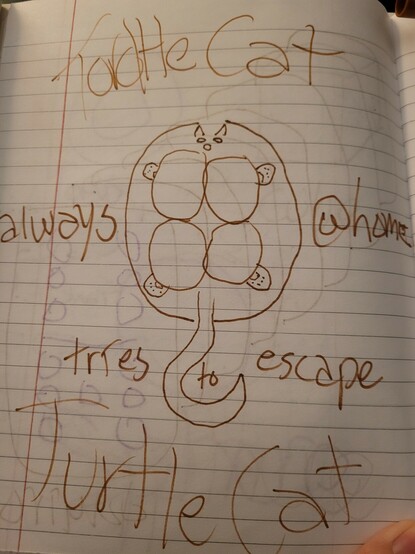 Turtle Cat
always @home
tries to escape
Turtle Cat